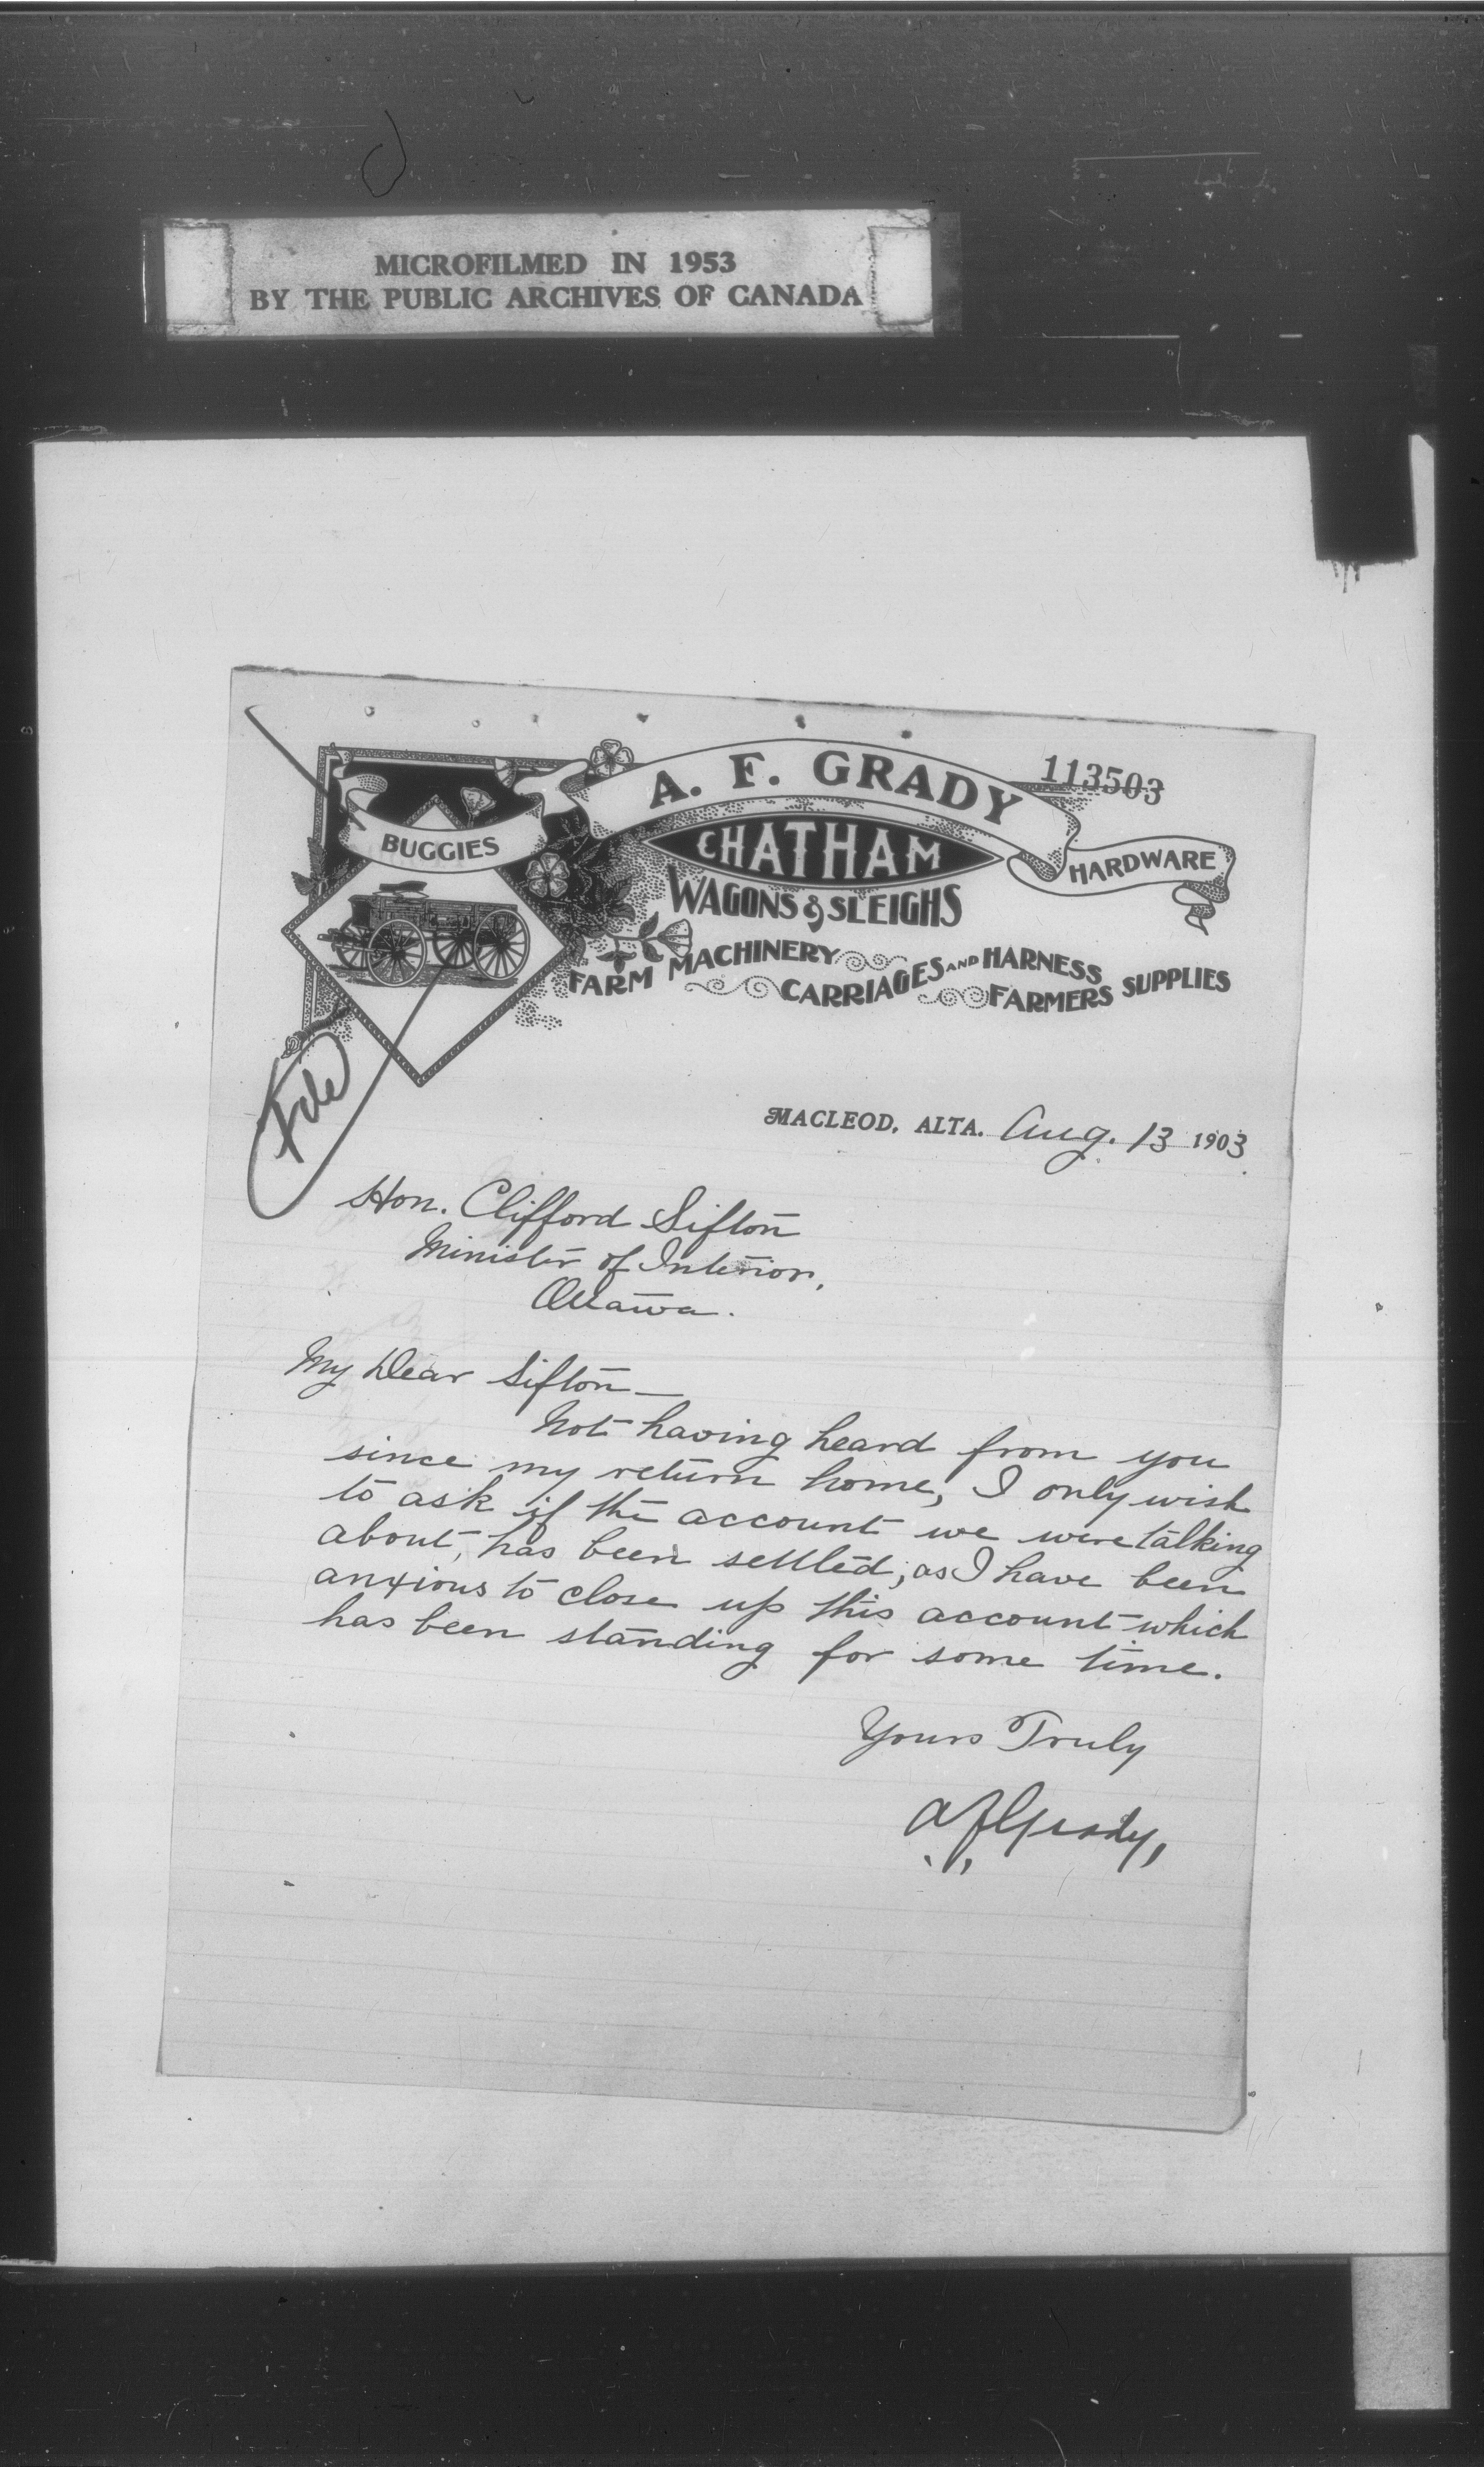 MICROFILMED IN 1953
BY THE PUBLIC ARCHIVES OF CANADA
113503
A. F. GRADY
BUGGIES
CHATHAM
HARDWARE
WAGONS & SLEIGHS
FARM MACHINERY CARRIAGES AND HARNESS FARMERS SUPPLIES
File
MACLEOD, ALTA. Aug. 13 1903
Hon. Clifford Sifton
Minister of Interior,
Ottawa.
My Dear Sifton—
Not having heard from you
since my return home, I only wish
to ask if the account we were talking
about, has been settled; as I have been
anxious to close up this account which
has been standing for some time.
Yours Truly
A F Grady,